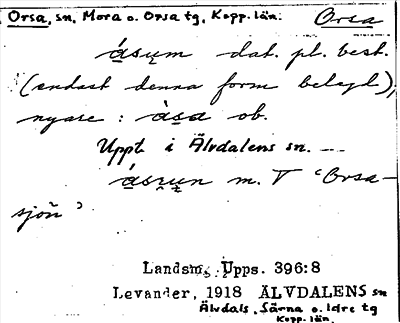 Orsa, sn, Mora o. Orsa tg, Kopp. län. Orsa
ásụm dat. pl. best.
(endast denna form belagd),
nyare: àsa ob.
Uppt i Älvdalens sn. —
m. T "Orsa-
sjön"
Landsm. Upps. 396:8
Levander, 1918 ÄLVDALENS sn
Älvdals, Särna o. Idre tg
Kopp. län.